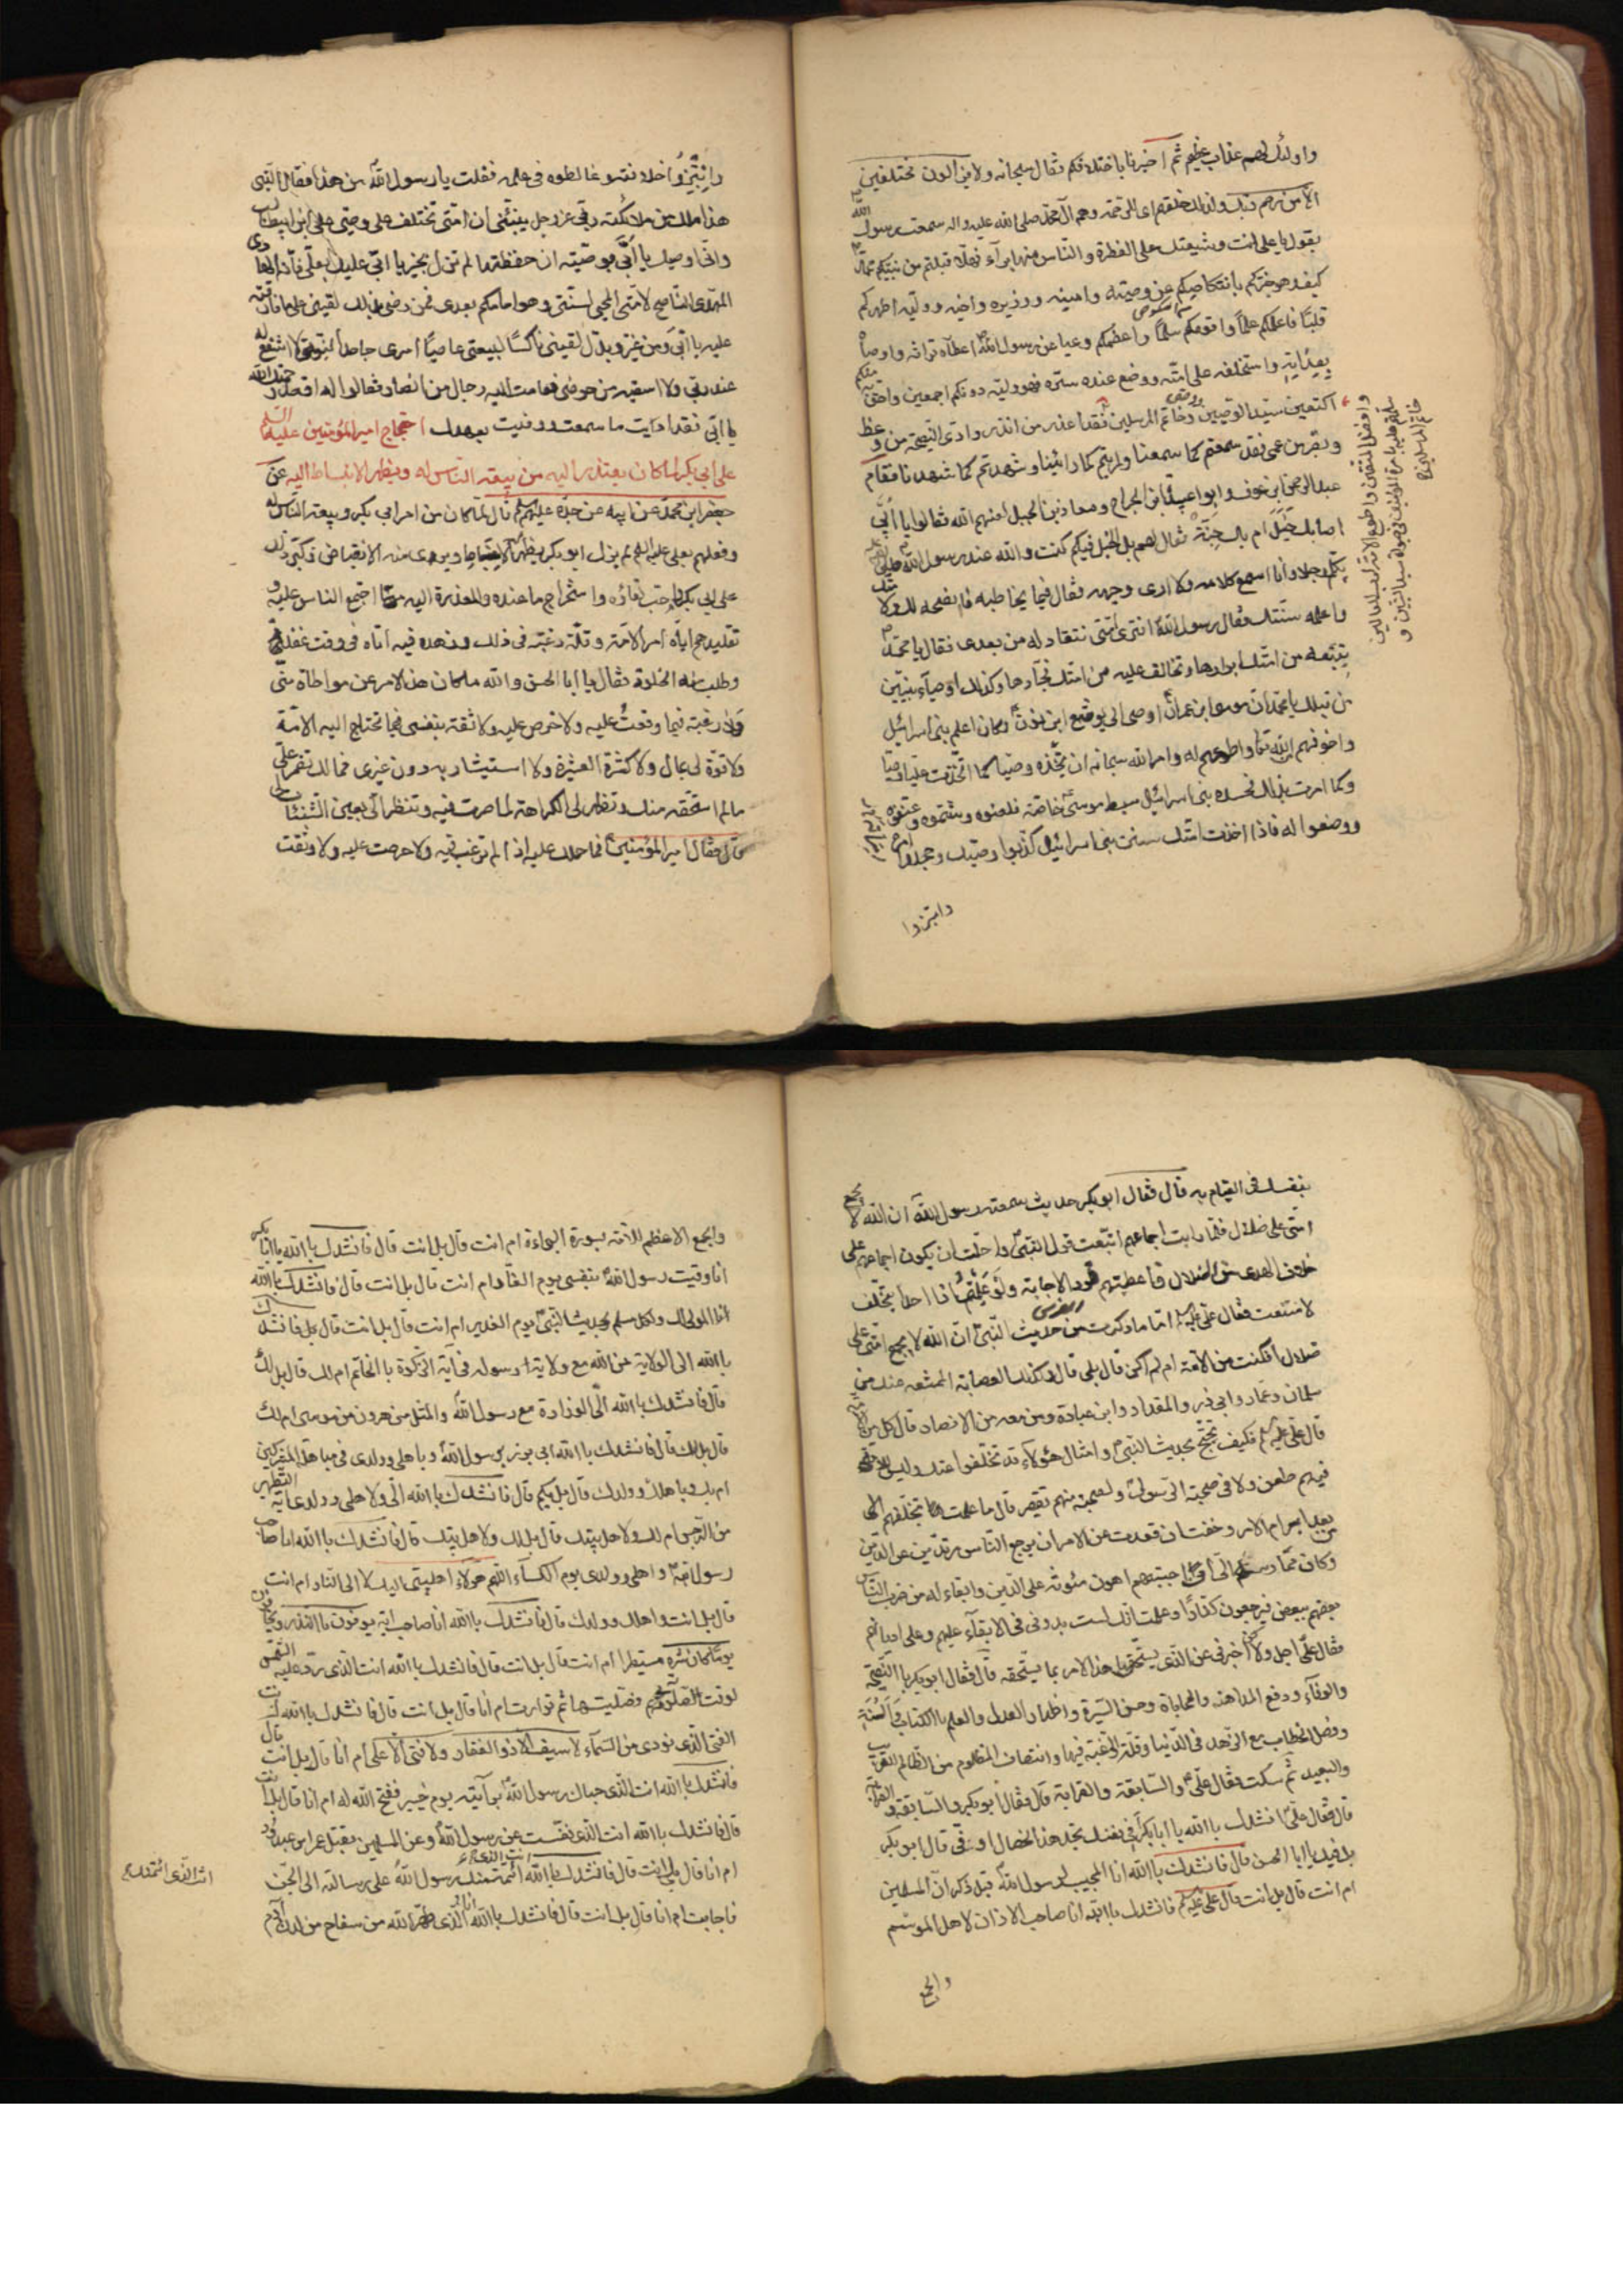 واولئك لهم عذاب عظيم ثم اخبرنا باختلافكم فقال سبحانه ولا يزالون مختلفين
الا من رحم ربك ولذلك خلقهم اى للرحمة وهم آل محمد صلى الله عليه واله سمعت رسول الله
يقول يا على انت وشيعتك على الفطرة والناس منها براء فهلا قبلتم من نبيكم
كيف وهو خبركم بانتكاصكم عن وصيته وامينه ووزيره واخيه ووليه اطهركم
قلبا واعلمكم علما واقدمكم سلما واعظمكم وعيا عن رسول الله اعطاه تراثه واوصاه
بعداته واستخلفه على امته ووضع عنده سره فهو وليه دونكم اجمعين واحق به منكم
اكتعين سيد الوصيين وخاتم المرسلين فقد اعذر من انذر وادى النصيحة من وعظ
وبصر من عمى فقد سمعتم كما سمعنا ورايتم كما راينا وشهدتم كما شهدنا فقام
عبد الرحمن ابن عوف وابو عبيدة ابن الجراح ومعاذ بن الجبل لعنهم الله فقالوا يا ابى
اصابك خبل ام بك جنة فقال لهم بل الخبل فيكم كنت والله عند رسول الله
يكلم رجلا وانا اسمع كلامه ولا ارى وجهه فقال فيما يخاطبه ما انصحه لك ولامتك
واعلمه بسنتك فقال رسول الله افترى امتى تنقاد له من بعدى فقال يا محمد
يتبعه من امتك ابرارها وتخالف عليه من امتك فجارها وكذلك اوصياء النبيين
من قبلك يا محمد ان موسى ابن عمران اوصى الى يوشع ابن نون وكان اعلم بنى اسرائيل
واخوفهم الله واطوعهم له وامر الله سبحانه ان يتخذه وصيا كما اتخذت عليا وصيا
وكما امرت بذلك فحسده بنى اسرائيل سبط موسى خاصة فلعنوه وشتموه وعنفوه
ووضعوا له فاذا اخذت امتك سنن بنى اسرائيل كذبوا وصيك وجحدوا امره
وابتزوا
وافضل المتقين واطوع الامة لرب العالمين
سلم عليه بامرة المؤمنين فى حيوة سيد النبيين و
خاتم المرسلين
وابتزوا خلافته وغالطوه فى علمه فقلت يا رسول الله من هذا فقال النبى
هذا ملك من ملائكة ربى عز وجل ينبئنى ان امتى تختلف على وصيى على ابن ابيطالب
وانى اوصيك يا ابى بوصية ان حفظتها لم تزل بخير يا ابى عليك بعلى فانه الهادى
المهدى الناصح لامتى المحيى لسنتى وهو امامكم بعدى فمن رضى بذلك لقينى على ما فارقته
عليه يا ابى ومن غير وبدل لقينى ناكثا لبيعتى عاصيا امرى جاحدا لنبوتى لا اشفع له
عند ربى ولا اسقيه من حوضى فقامت اليه رجال من الانصار فقالوا له اقعد رحمك الله
يا ابى فقد اديت ما سمعت ووفيت بعهدك احتجاج امير المؤمنين عليه السلم
على ابى بكر لما كان يعتذر اليه من بيعة الناس له ويظهر الانبساط اليه عن
جعفر ابن محمد عن ابيه عن جده عليهم السلم قال لما كان من امر ابى بكر وبيعة الناس له
وفعلهم بعلى عليه السلم لم يزل ابو بكر يظهر الانبساط ويرى منه الانقباض فكبر ذلك
على ابى بكر واحب لقاءه واستخراج ما عنده والمعذرة اليه مما اجتمع الناس عليه و
تقليدهم اياه امر الامة وقلة رغبته فى ذلك وزهده فيه اتاه فى وقت غفلة
وطلب منه الخلوة فقال يا ابا الحسن والله ما كان هذا الامر عن مواطاة منى
ولا رغبة فيما وقعت عليه ولا حرص عليه ولا ثقة بنفسى فيما تحتاج اليه الامة
ولا قوة لى بمال ولا كثرة العشيرة ولا استيشار به دون غيرى فما لك تضمر على
ما لم استحقه منك وتظهر لى الكراهة لما صرت فيه وتنظر الى بعين الشنئان
قال فقال امير المؤمنين فما حملك عليه اذا لم ترغب فيه ولا حرصت عليه ولا وثقت
بنفسك فى القيام به قال فقال ابو بكر حديث سمعته رسول الله ان الله لا يجمع
امتى على ضلال فلما رايت اجماعهم اتبعت قول النبى واحلت ان يكون اجماعهم على
خلاف الهدى من الضلال فاعطيتهم قود الاجابة ولو علمت ان احدا يتخلف
لامتنعت فقال على اما ما ذكرت من حديث النبى ان الله لا يجمع امتى على
ضلال افكنت من الامة ام لم اكن قال بلى قال وكذلك العصابة الممتنعة عنك من
سلمان وعمار وابى ذر والمقداد وابن عبادة ومن معه من الانصار قال كل من الامة
قال على عليه السلم فكيف تحتج بحديث النبى وامثال هؤلاء قد تخلفوا عنك وليس
فيهم طعن ولا فى صحبة الرسول ولصحبته منهم تقصير قال ما علمت بتخلفهم الا
بعد ابرام الامر وخفت ان قعدت عن الامر ان يرجع الناس مرتدين عن الدين
وكان ممارستهم الى ان اجبتهم اهون مئونة على الدين وابقاء له من ضرب الناس
بعضهم ببعض فيرجعون كفارا وعلمت انك لست بدونى فى الابقاء عليهم وعلى اديانهم
فقال على اجل ولكن اخبرنى عن الذى يستحق هذا الامر بما يستحقه قال فقال ابو بكر بالنصيحة
والوفاء ودفع المداهنة والمحاباة وحسن السيرة واظهار العدل والعلم بالكتاب والسنة
وفصل الخطاب مع الزهد فى الدنيا وقلة الرغبة فيها وانتصاف المظلوم من الظالم القريب
والبعيد ثم سكت فقال على والسابقة والقرابة قال فقال ابو بكر والسابقة والقرابة
قال فقال على انشدك بالله يا ابا بكر افى نفسك تجد هذه الخصال او فى قال ابو بكر
بل فيك يا ابا الحسن قال فانشدك بالله انا المجيب لرسول الله قبل ذكران المسلمين
ام انت قال بل انت قال على عليه السلم فانشدك بالله انا صاحب الاذان لاهل الموسم
والجمع
والجمع الاعظم للامة بسورة البراءة ام انت قال بل انت قال فانشدك بالله يا ابا بكر
انا وقيت رسول الله بنفسى يوم الغار ام انت قال بل انت قال فانشدك بالله
انا المولى لك ولكل مسلم بحديث النبى يوم الغدير ام انت قال بل انت قال بل فانشدك
بالله الى الولاية من الله مع ولاية رسوله فى آية الزكوة بالخاتم ام لك قال بل لك
قال فانشدك بالله الى الوزارة مع رسول الله والمثل من هرون من موسى ام لك
قال بل لك قال فانشدك بالله ابى برز رسول الله وباهلى وولدى فى مباهلة المشركين
ام بك وباهلك وولدك قال بل بكم قال فانشدك بالله الى ولاهلى وولدى آية التطهير
من الرجس ام لك ولاهل بيتك قال بل لك ولاهل بيتك قال فانشدك بالله انا صاحب
رسول الله واهلى وولدى يوم الكساء اللهم هؤلاء اهلبيتى اليك لا الى النار ام انت
قال بل انت واهلك وولدك قال فانشدك بالله انا صاحب آية يوفون بالنذر ويخافون
يوما كان شره مستطيرا ام انت قال بل انت قال فانشدك بالله انت الذى رد عليه الشمس
لوقت الصلوة فصليتها ثم توارت ام انا قال بل انت قال فانشدك بالله انت
الفتى الذى نودى من السماء لا سيف الا ذو الفقار ولا فتى الا على ام انا قال بل انت قال
فانشدك بالله انت الذى حباك رسول الله برايته يوم خيبر ففتح الله له ام انا قال بل انت
قال فانشدك بالله انت الذى نفست عن رسول الله وعن المسلمين بقتل عمرابن عبد ود
ام انا قال بل انت قال فانشدك بالله ائتمنك رسول الله على رسالته الى الجن
فاجابت ام انا قال بل انت قال فانشدك بالله انا الذى طهره الله من سفاح من لدن آدم
انت الذى ائتمنك